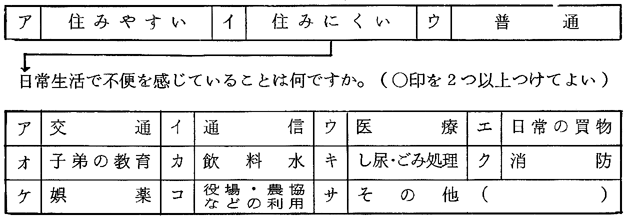 ア 住みやすい イ 住みにくい ウ 普通
日常生活で不便を感じていることは何ですか。(○印を2つ以上つけてよい)
ア 交通 イ 通信 ウ 医療 エ 日常の買物
オ 子弟の教育 カ 飲料水 キ し尿・ごみ処理 ク 消防
ケ 娯薬 コ 役場・農協などの利用 サ その他( )